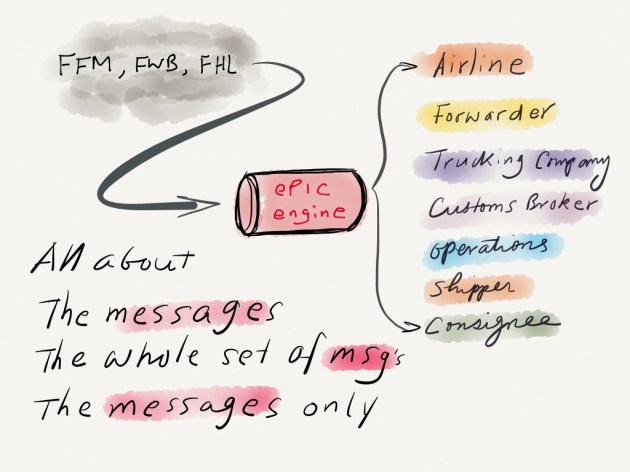 FFM, FWB, FHL
ePIC
engine
Airline
Forwarder
Trucking Company
Customs Broker
operations
Shipper
Consignee
All about
The messages
The whole set of msg's
The messages only